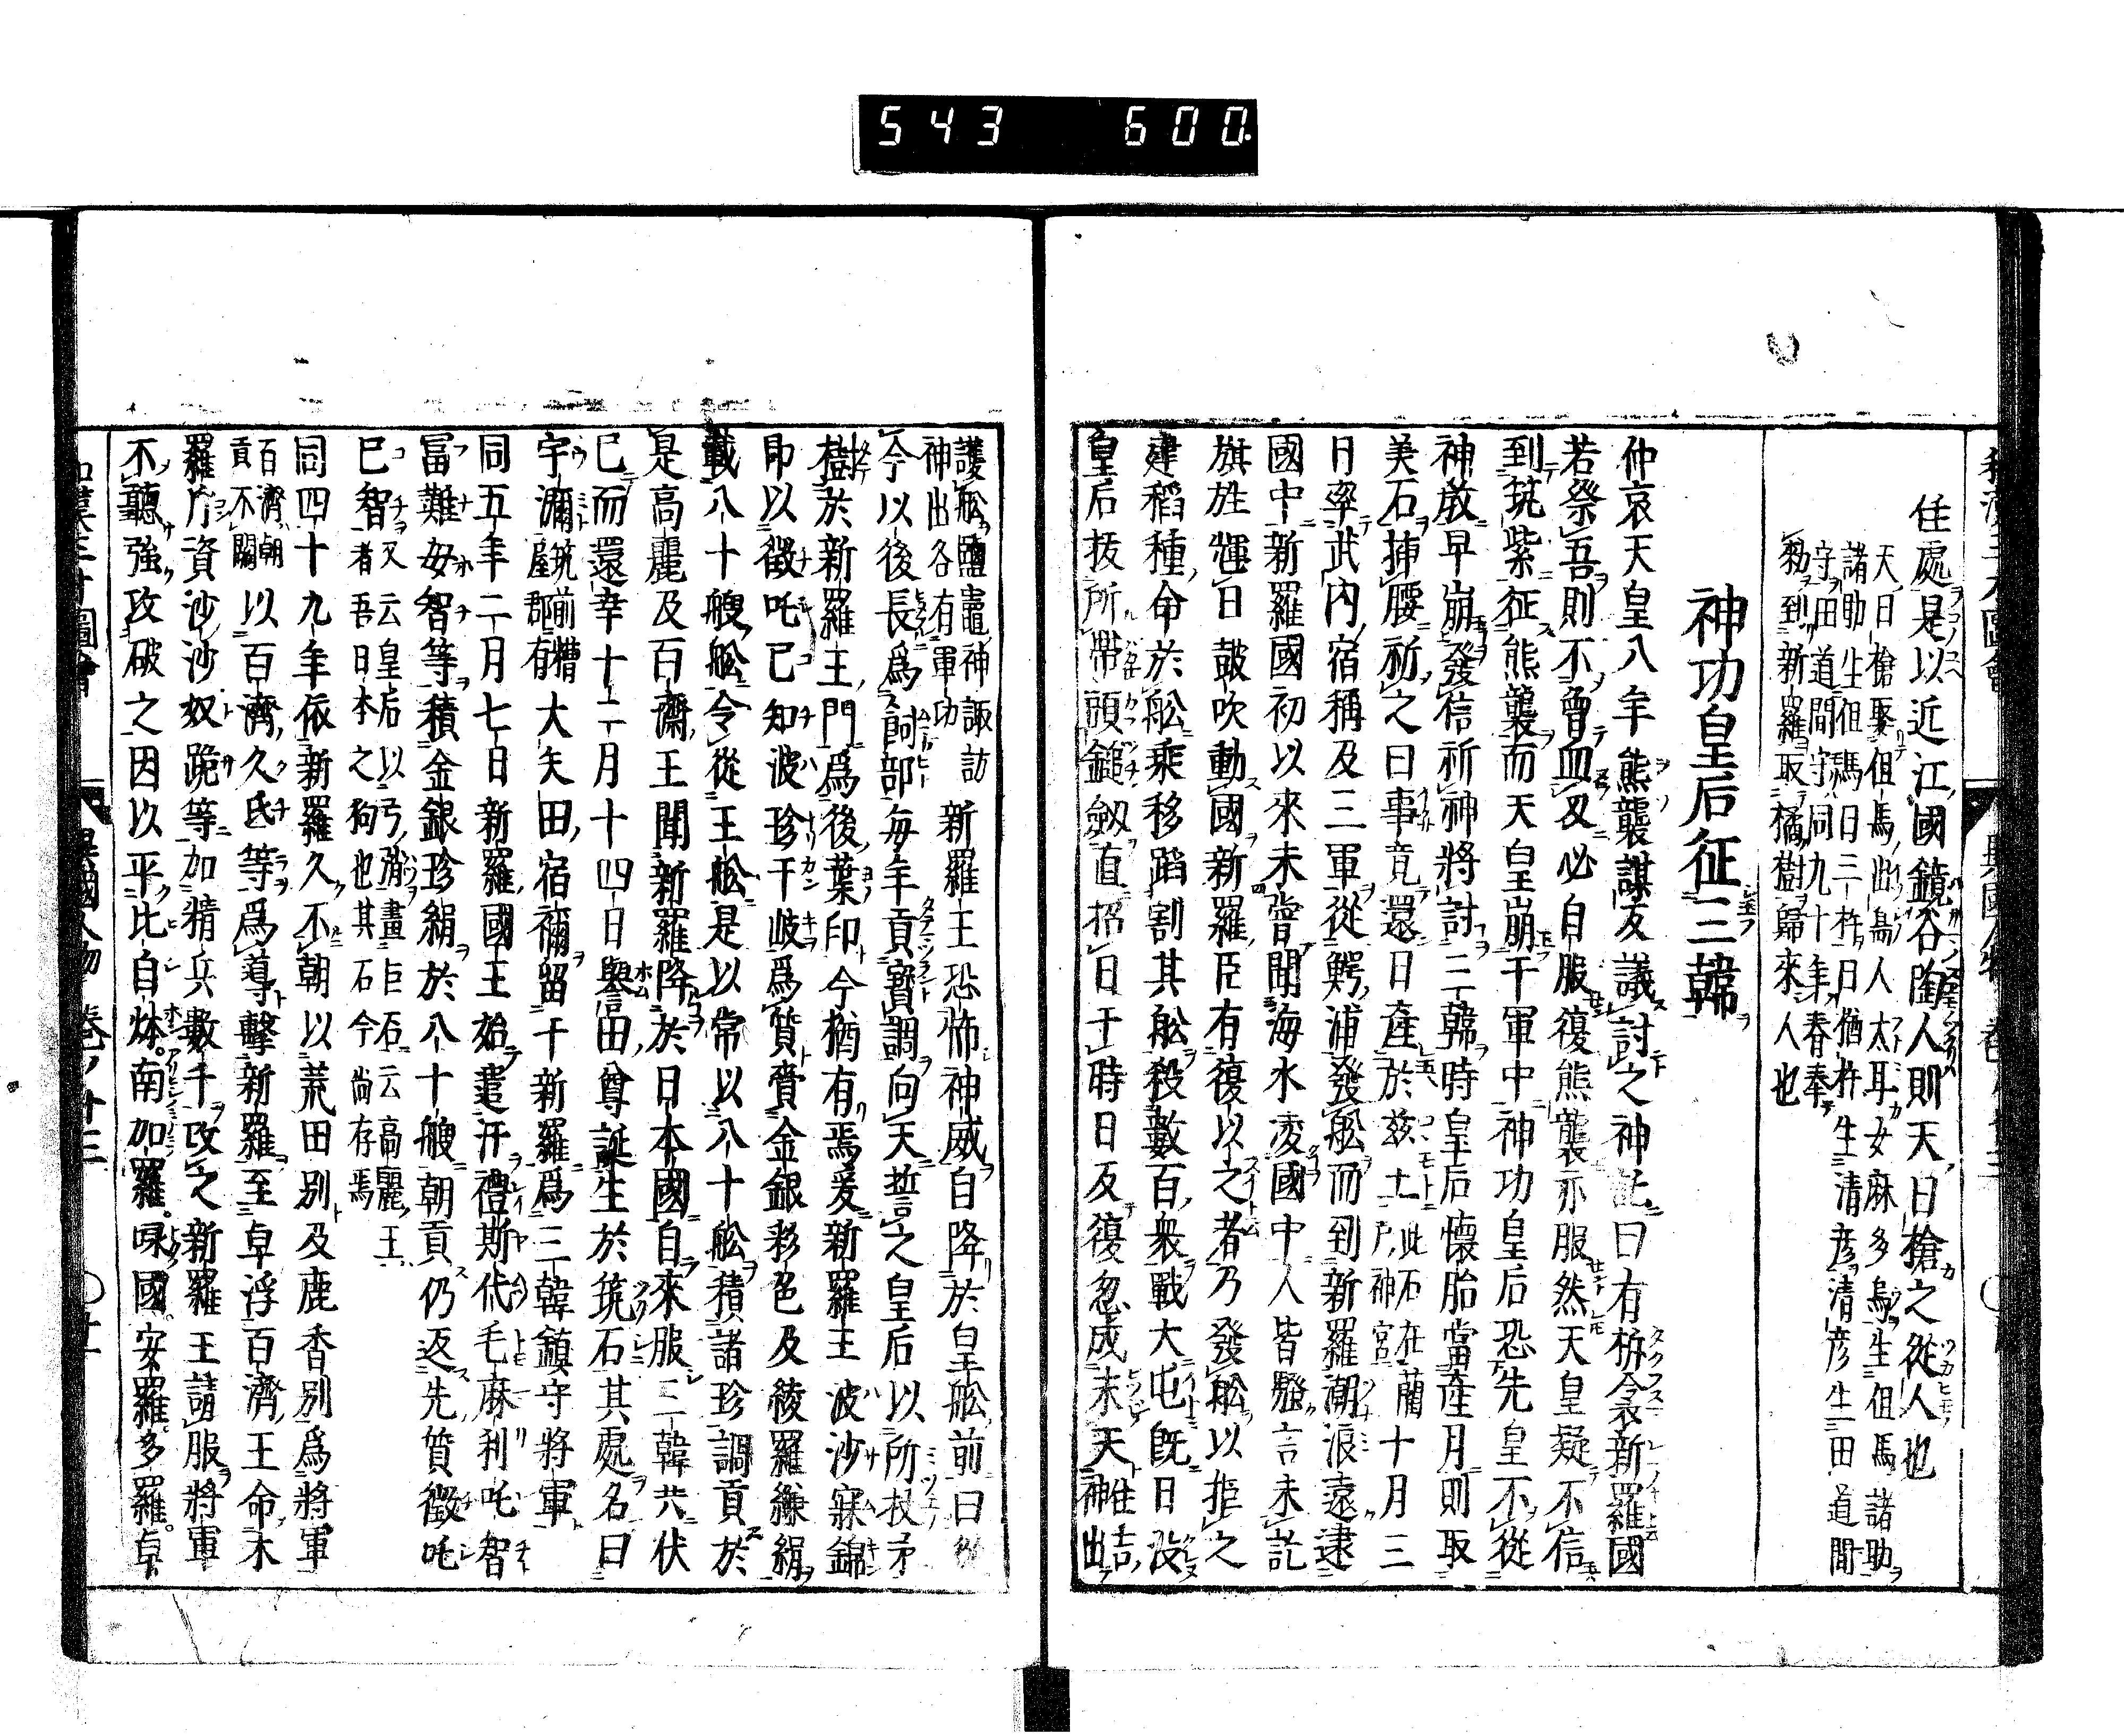 543 600
住處是以近江國鏡谷陶人則天日槍之從人也
天日槍娶但馬出嶋人太耳女麻多烏生但馬諸助
諸助生但馬日三杵日猶杵生清彦清彦生田道間
守田道間守同九十年春奉
勑到新羅取橘樹歸來人也
神功皇后征三韓
仲哀天皇八年熊襲謀反議討之神託曰有栲衾新羅國
若祭吾則不曾血刄必自服復熊襲亦服然天皇疑不信
到筑紫征熊襲而天皇崩于軍中神功皇后恐先皇不從
神敎早崩發信祈神將討三韓時皇后懷胎當產月則取
美石揷腰祈之曰事竟還日產於兹土此石在藺十月三
日率武內宿稱及三軍從鰐浦發舩而到新羅潮浪遠逮
國中新羅國初以來未甞聞海水凌國中人皆騷言未訖
旗旌輝日鼓吹動國新羅臣有復以之者乃發舩以拒之
建稻種命於舩乘移蹈割其舩殺數百衆戰大屯旣日沒
皇后拔所帶頭鎚劔直招日于時日反復忽成未天神出
護舩鹽竈神諏訪
神出各有軍功
新羅王恐怖神威自降於皇舩前曰從
今以後長爲飼部每年貢寳調向天誓之皇后以所杖矛
樹於新羅王門爲後葉印今猶有焉爰新羅王波沙寐錦
即以微叱己知波珍干岐爲質賷金銀彩色及綾羅縑絹
載八十艘舩令從王舩是以常以八十舩積諸珍調貢於
是高麗及百濟王聞新羅降於日本國自來服三韓共伏
已而還幸十二月十四日譽田尊誕生於筑石其處名曰
宇瀰筑前糟
屋郡有
大矢田宿禰留于新羅爲三韓鎮守將軍
同五年二月七日新羅國王始遣汗禮斯代毛麻利叱智
冨難姶智等積金銀珍絹於八十艘朝貢仍返先質微叱
已智又云皇后以弓弭畫巨石云高麗王
者吾日本之狗也其石今尚存焉
同四十九年依新羅久不朝以荒田別及鹿香別爲將軍
百濟朝
貢不闕
以百濟久氏等爲導擊新羅至卓浮百濟王命木
羅斤資沙沙奴跪等加精兵數千攻之新羅王請服將軍
不聽強攻破之因以平比自㶱南加羅㖨國安羅多羅卓